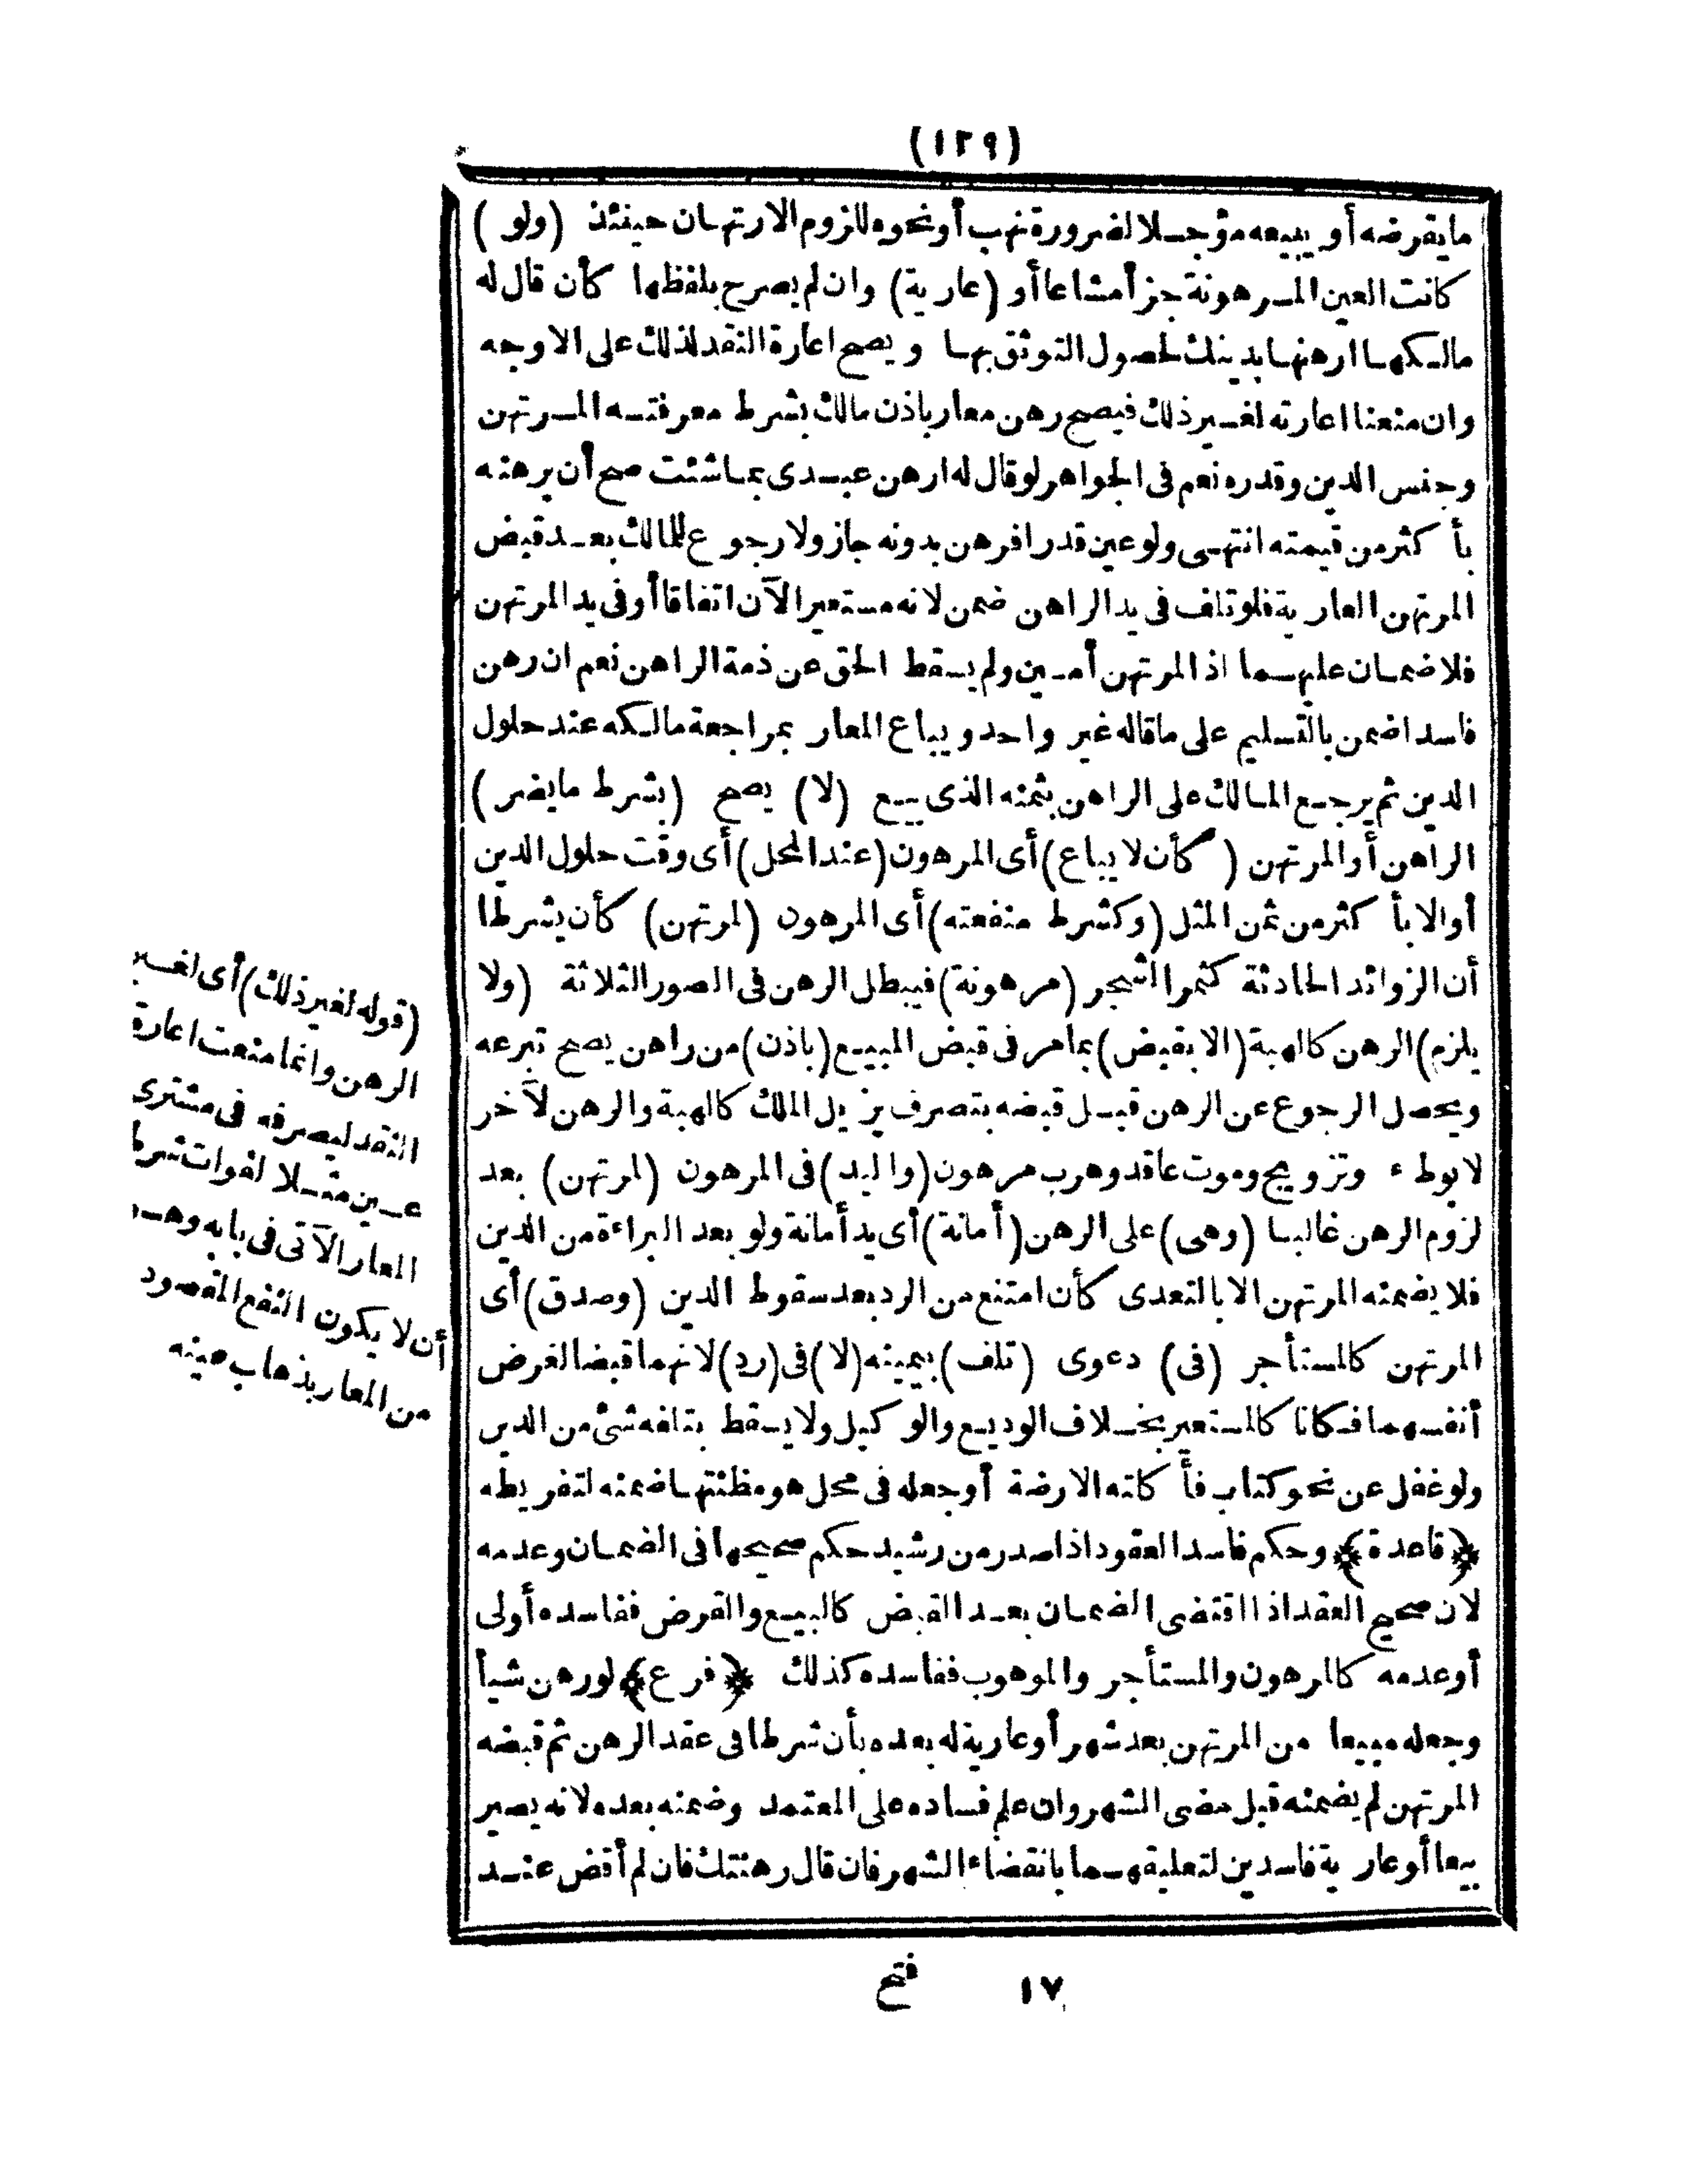 (١٢٩)
ما يقرضه أو يبيعه مؤجلا لضرورة نهب أو نحوه للزوم الارتهان حينئذ (ولو)
كانت العين المرهونة جزأ مشاعا أو (عارية) وان لم يصرح بلفظها كأن قال له
مالكها ارهنها بدينك لحصول التوثق بها ويصح اعارة النقد لذلك على الاوجه
وان منعنا اعارته لغير ذلك فيصح رهن معار باذن مالك بشرط معرفته المرتهن
وجنس الدين وقدره نعم فى الجواهر لو قال له ارهن عبدى بما شئت صح أن يرهنه
بأكثر من قيمته انتهى ولو عين قدرا فرهن بدونه جاز ولا رجوع للمالك بعد قبض
المرتهن العارية فلو تلف فى يد الراهن ضمن لانه مستعير الآن اتفاقا أو فى يد المرتهن
فلا ضمان عليهما اذ المرتهن أمين ولم يسقط الحق عن ذمة الراهن نعم ان رهن
فاسدا ضمن بالتسليم على ما قاله غير واحد ويباع المعار بمراجعة مالكه عند حلول
الدين ثم يرجع المالك على الراهن بثمنه الذى بيع (لا) يصح (بشرط ما يضر)
الراهن أو المرتهن (كأن لا يباع) أى المرهون (عند المحل) أى وقت حلول الدين
أو الا بأكثر من ثمن المثل (وكشرط منفعته) أى المرهون (لمرتهن) كأن يشرطا
أن الزوائد الحادثة كثمر الشجر (مرهونة) فيبطل الرهن فى الصور الثلاثة (ولا
يلزم) الرهن كالهبة (الا بقبض) بما مر فى قبض المبيع (باذن) من راهن يصح تبرعه
ويحصل الرجوع عن الرهن قبل قبضه بتصرف يزيل الملك كالهبة والرهن لآخر
لا بوطء وتزويج وموت عاقد وهرب مرهون (واليد) فى المرهون (لمرتهن) بعد
لزوم الرهن غالبا (وهى) على الرهن (أمانة) أى يد أمانة ولو بعد البراءة من الدين
فلا يضمنه المرتهن الا بالتعدى كأن امتنع من الرد بعد سقوط الدين (وصدق) أى
المرتهن كالمستأجر (فى) دعوى (تلف) بيمينه (لا) فى (رد) لانهما قبضا لغرض
أنفسهما فكانا كالمستعير بخلاف الوديع والوكيل ولا يسقط بتلفه شئ من الدين
ولو غفل عن نحو كتاب فأكلته الارضة أو جعله فى محل هو مظنتها ضمنه لتفريطه
﴿قاعدة﴾ وحكم فاسد العقود اذا صدر من رشيد حكم صحيحها فى الضمان وعدمه
لان صحيح العقد اذا اقتضى الضمان بعد القبض كالبيع والقرض ففاسده أولى
أو عدمه كالمرهون والمستأجر والموهوب ففاسده كذلك ﴿فرع﴾ لو رهن شيأ
وجعله مبيعا من المرتهن بعد شهر أو عارية له بعده بأن شرطا فى عقد الرهن ثم قبضه
المرتهن لم يضمنه قبل مضى الشهر وان علم فساده على المعتمد وضمنه بعده لانه يصير
بيعا أو عارية فاسدين لتعليقهما بانقضاء الشهر فان قال رهنتك فان لم أقض عند
(قوله لغير ذلك) أى لغير
الرهن وانما منعت اعارة
النقد ليصرفه فى مشترى
عين مثلا لفوات شرط
المعار الآتى فى بابه وهو
أن لا يكون النفع المقصود
من المعار بذهاب عينه
١٧ فتح